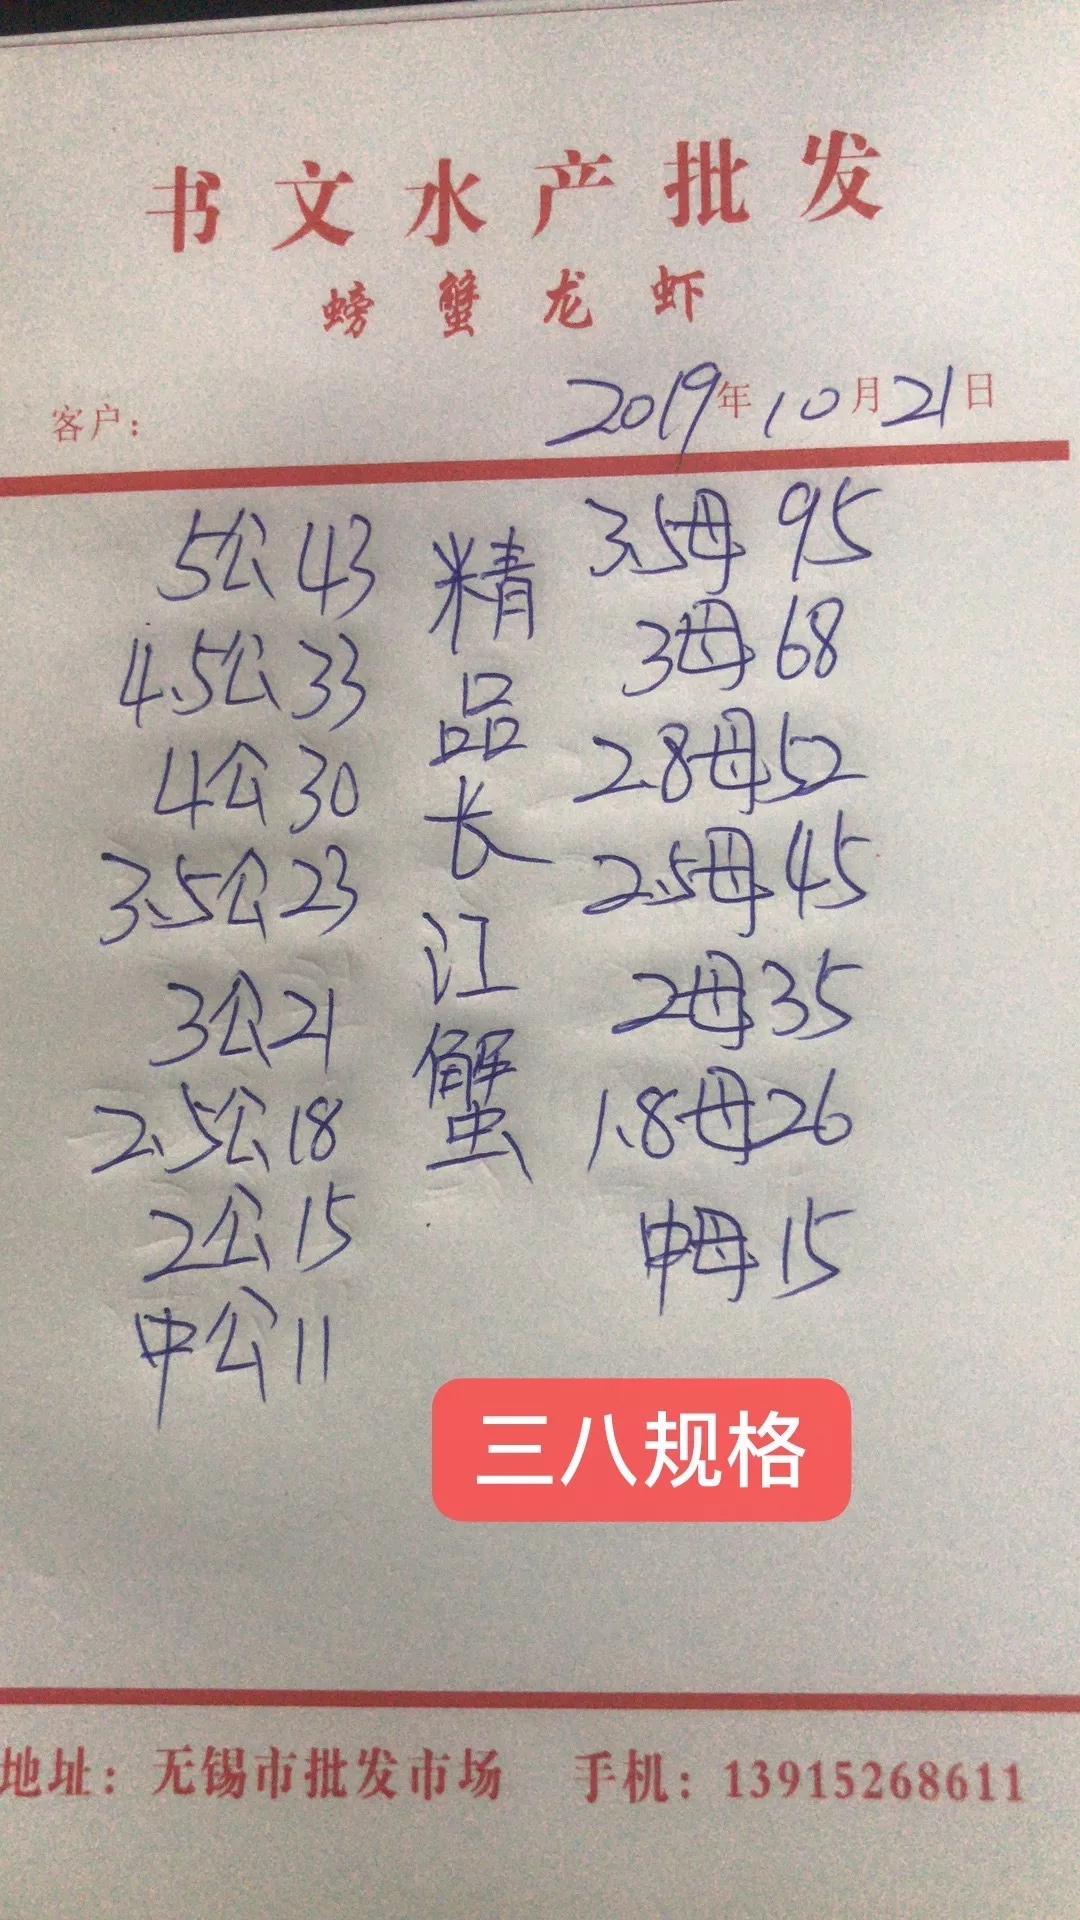 书文水产批发
螃蟹龙虾
客户：
2019年10月21日
5公 43
4.5公 33
4公 30
3.5公 23
3公 21
2.5公 18
2公 15
中公 11
精品长江蟹
3.5母 95
3母 68
2.8母 52
2.5母 45
2母 35
1.8母 26
中母 15
三八规格
地址：无锡市批发市场 手机：13915268611